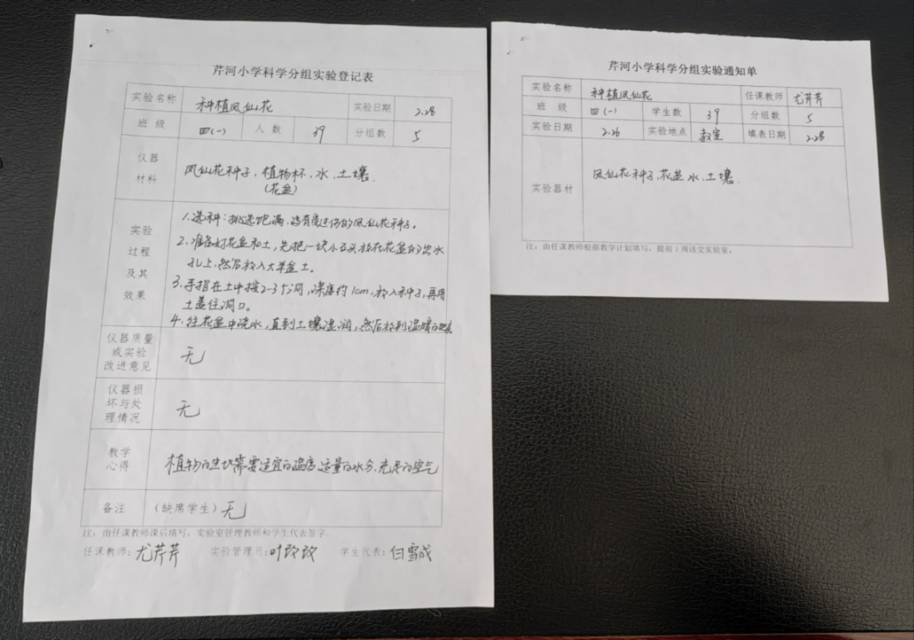 芹河小学科学分组实验登记表
实验名称 种植凤仙花 实验日期 2.28
班 级 四(一) 人 数 39 分组数 5
仪器
材料
凤仙花种子、植物杯、水、土壤
(花盆)
实验
过程
及其
效果
1.选种:挑选饱满、没有受过伤的凤仙花种子。
2.准备好花盆和土,先把一块小石头放在花盆的出水
孔上,然后放入大半盆土。
3.手指在土中按2-3个洞,深度约1cm,放入种子,再用
土盖住洞口。
4.往花盆中浇水,直到土壤湿润,然后放到温暖的地方
仪器质量
或实验
改进意见
无
仪器损
坏与处
理情况
无
教学
心得
植物的生长需要适宜的温度、适量的水分、充足的空气
备注 (缺席学生) 无
注:由任课教师课后填写,实验室管理教师和学生代表签字
任课教师:尤芹芹 实验管理员:叶玲玲 学生代表:白雪成
芹河小学科学分组实验通知单
实验名称 种植凤仙花 任课教师 尤芹芹
班 级 四(一) 学生数 39 分组数 5
实验日期 2.28 实验地点 教室 填表日期 2.28
实验器材 凤仙花种子、花盆、水、土壤
注:由任课教师根据教学计划填写,提前1周送交实验室。